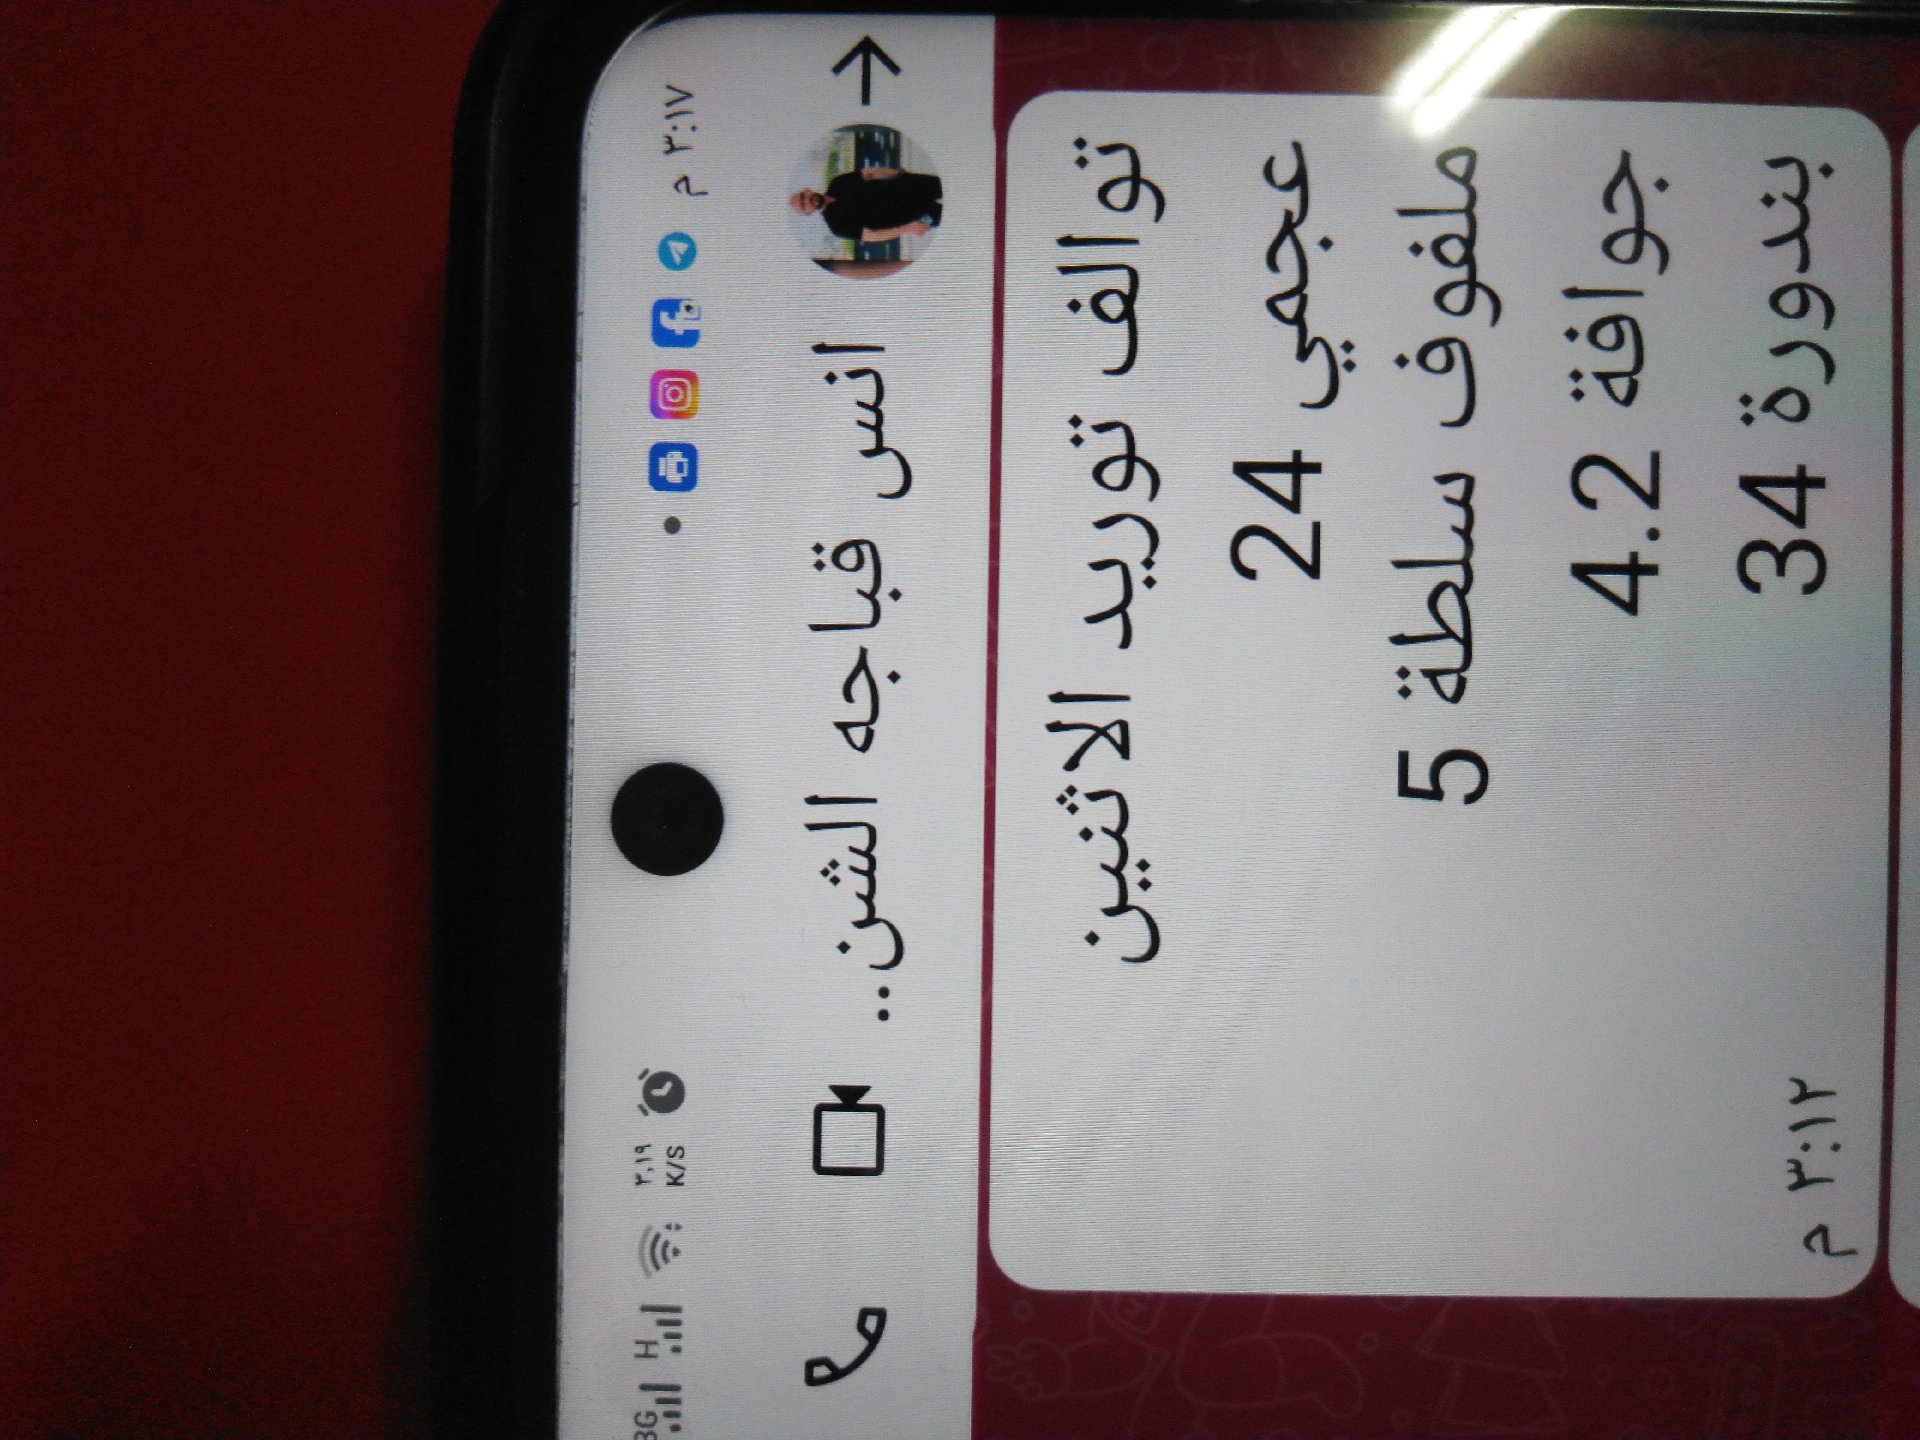 ٣:١٧ م
٢,١٩ K/S
H
3G
انس قباجه الشن...
توالف توريد الاثنين
عجمي 24
ملفوف سلطة 5
جوافة 4.2
بندورة 34
٣:١٢ م